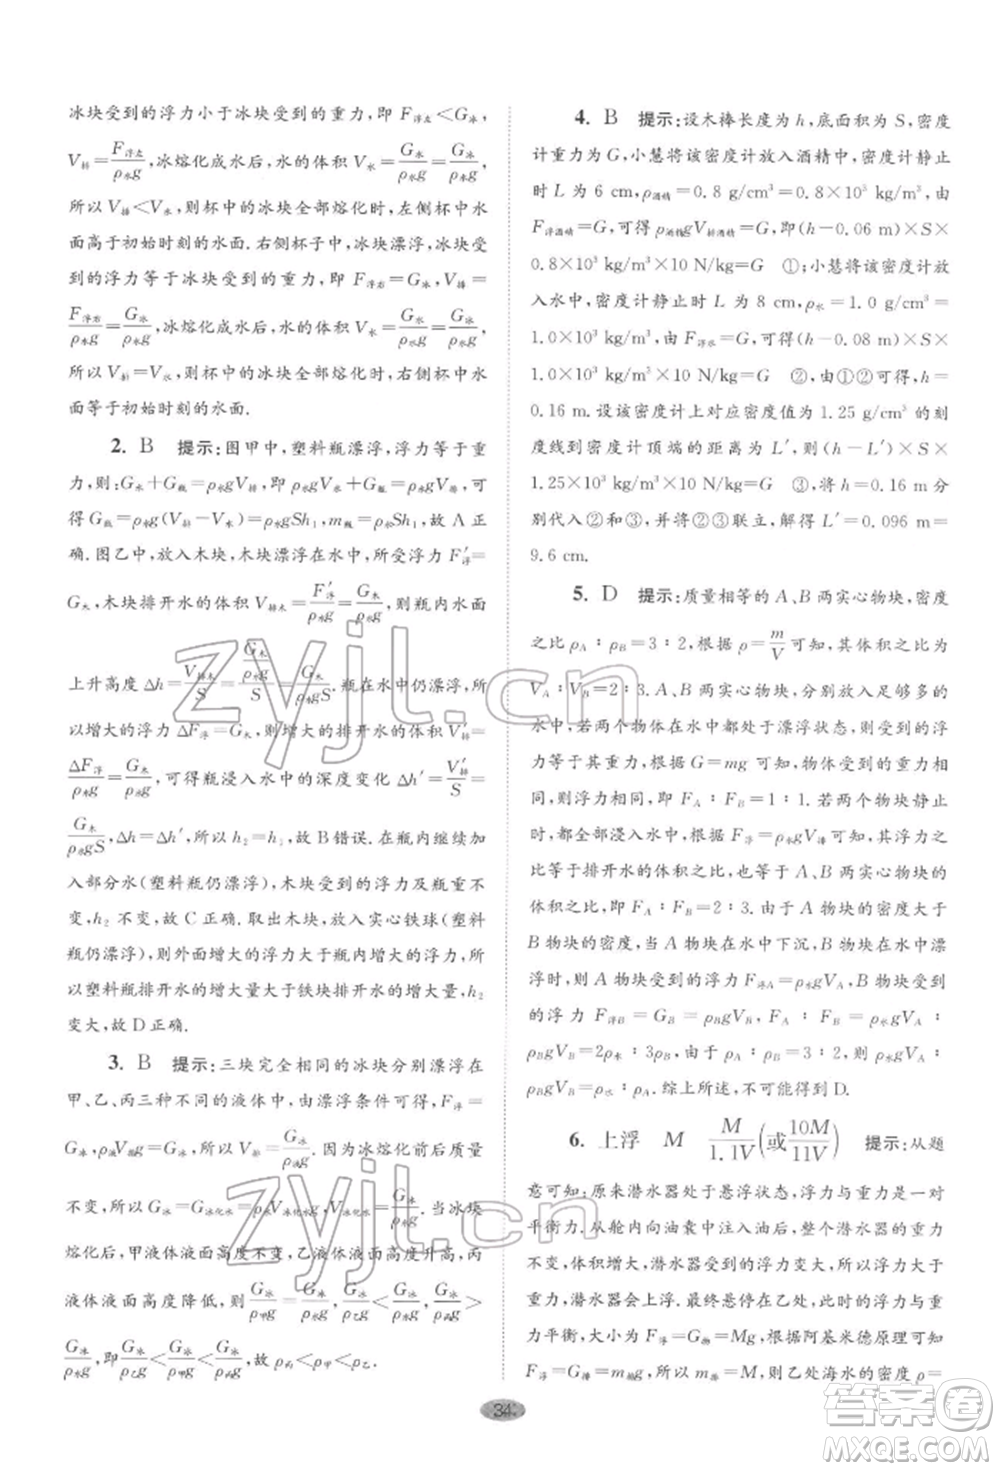 冰块受到的浮力小于冰块受到的重力,即 F浮左<G冰,
V排=F浮左/ρ水g,冰熔化成水后,水的体积 V水=G冰/ρ水g,
所以 V排<V水,则杯中的冰块全部熔化时,左侧杯中水
面高于初始时刻的水面.右侧杯子中,冰块漂浮,冰块受
到的浮力等于冰块受到的重力,即 F浮右=G冰,V排=
F浮右/ρ水g=G冰/ρ水g,冰熔化成水后,水的体积 V水=G冰/ρ水g,
所以 V排=V水,则杯中的冰块全部熔化时,右侧杯中水
面等于初始时刻的水面.
2. B 提示:图甲中,塑料瓶漂浮,浮力等于重
力,则:G水+G瓶=ρ水gV排,即 G水+G瓶=ρ水gV排,可
得 G瓶=ρ水g(V排-V水)=ρ水gSh₁,m瓶=ρ水Sh₁,故 A 正
确.图乙中,放入木块,木块漂浮在水中,所受浮力 F′浮=
G木,木块排开水的体积 V排木=F′浮/ρ水g=G木/ρ水g,则瓶内水面
上升高度 Δh=V排木/S=(G木/ρ水g)/S=G木/ρ水gS.瓶在水中仍漂浮,所
以增大的浮力 ΔF浮=G木,则增大的排开水的体积 V′排=
ΔF浮/ρ水g=G木/ρ水g,可得瓶浸入水中的深度变化 Δh′=V′排/S=
G木/ρ水gS,Δh=Δh′,所以 h₂=h₁,故 B 错误.在瓶内继续加
入部分水(塑料瓶仍漂浮),木块受到的浮力及瓶重不
变,h₂ 不变,故 C 正确.取出木块,放入实心铁球(塑料
瓶仍漂浮),则外面增大的浮力等于瓶内增大的重力,所
以塑料瓶排开水的增大量大于铁块排开水的增大量,h₂
变大,故 D 正确.
3. B 提示:三块完全相同的冰块分别漂浮在
甲、乙、丙三种不同的液体中,由漂浮条件可得,F浮=
G冰,ρ液V排g=G冰,所以 V排=G冰/ρ液g.因为冰熔化前后质量
不变,所以 G冰=G冰化水=ρ水gV冰化水,V冰化水=G冰/ρ水g.当冰块
熔化后,甲液体液面高度不变,乙液体液面高度升高,丙
液体液面高度降低,则 G冰/ρ甲g=G冰/ρ水g,G冰/ρ乙g<G冰/ρ水g,G冰/ρ丙g>
G冰/ρ水g,即 G冰/ρ乙g<G冰/ρ甲g<G冰/ρ丙g,故 ρ丙<ρ甲<ρ乙.
4. B 提示:设木棒长度为 h,底面积为 S,密度
计重力为 G.小慧将该密度计放入酒精中,密度计静止
时 L 为 6 cm,ρ酒精=0.8 g/cm³=0.8×10³ kg/m³,由
F浮酒精=G,可得 ρ酒精gV排酒精=G,即(h-0.06 m)×S×
0.8×10³ kg/m³×10 N/kg=G ①;小慧将该密度计放
入水中,密度计静止时 L 为 8 cm,ρ水=1.0 g/cm³=
1.0×10³ kg/m³,由 F浮水=G,可得(h-0.08 m)×S×
1.0×10³ kg/m³×10 N/kg=G ②,由①②可得,h=
0.16 m.设该密度计上对应密度值为 1.25 g/cm³ 的刻
度线到密度计顶端的距离为 L′,则(h-L′)×S×
1.25×10³ kg/m³×10 N/kg=G ③,将 h=0.16 m 分
别代入②和③,并将②③联立,解得 L′=0.096 m=
9.6 cm.
5. D 提示:质量相等的 A、B 两实心物块,密度
之比 ρA∶ρB=3∶2,根据 ρ=m/V 可知,其体积之比为
VA∶VB=2∶3.A、B 两实心物块,分别放入足够多的
水中,若两个物体在水中都处于漂浮状态,则受到的浮
力等于其重力,根据 G=mg 可知,物块所受的重力相
同,则所受浮力相同,即 FA∶FB=1∶1.若两个物块静止
时,都全部浸入水中,根据 F浮=ρ水gV排 可知,其浮力之
比等于排开水的体积之比,根据阿基米德原理可得,所
受浮力之比 FA∶FB=2∶3.由于 A 物块的密度大于
B 物块的密度,当 A 物块在水中下沉,B 物块在水中漂
浮时,则 A 物块受到的浮力 F浮A=ρ水gVA,B 物块受到
的浮力 F浮B=GB=ρBgVB,FA∶FB=ρ水gVA∶
ρBgVB=2ρ水∶3ρB,由于 ρA∶ρB=3∶2,则 ρ水gVA∶
ρBgVB=ρ水∶ρA.综上所述,不可能得到 D.
6. 上浮 M M/1.1V(或10M/11V) 提示:从题
意可知:原来潜水器处于悬浮状态,浮力与重力是一对
平衡力.从舱内向油囊中注入油后,整个潜水器的重力
不变,体积增大,排开海水的体积变大,浮力大于重力
时,潜水器上浮.最终悬停在乙处,此时的浮力与重
力平衡,大小为 F浮=G物=Mg,根据阿基米德原理可知
F浮=G排=m排g,所以 m排=M,则乙处海水的密度 ρ=
34
zyjl.cn
zyjl.cn
答案圈
MXQE.COM